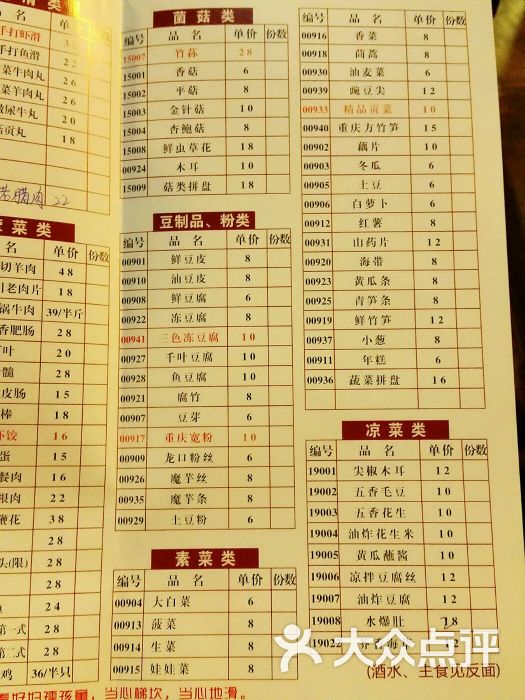 滑 类
名 单价 份数
手打虾滑 32
手打鱼滑
菜牛肉丸 26
菜羊肉丸 26
尿牛丸 20
贡丸 18
腊肉 22
荤 菜 类
名 单价 份数
切羊肉 48
老肉片 18
锅牛肉 39/半斤
香肥肠 28
叶 20
髓 28
皮肠 15
棒 18
饺 16
蛋 15
餐肉 16
根肉 22
鞭花 38
28
头(限) 28
28
28
第一式 28
第二式 28
鸡 36/半只
看好妇孺孩童，当心梯坎，当心地滑。
菌 菇 类
编号 品 名 单价 份数
15007 竹荪 28
15001 香菇 8
15002 平菇 8
15003 金针菇 10
15004 杏鲍菇 8
15008 鲜虫草花 18
00924 木耳 10
15009 菇类拼盘 18
豆制品、粉类
编号 品 名 单价 份数
00901 鲜豆皮 8
00910 油豆皮 8
00908 鲜豆腐 6
00922 冻豆腐 8
00941 三色冻豆腐 10
00927 千叶豆腐 10
00928 鱼豆腐 10
00921 腐竹 8
00907 豆芽 6
00917 重庆宽粉 10
00909 龙口粉丝 6
00926 魔芋丝 8
00935 魔芋条 8
00929 土豆粉 6
素 菜 类
编号 品 名 单价 份数
00904 大白菜 6
00913 菠菜 8
00914 生菜 8
00915 娃娃菜 8
00916 香菜 8
00918 茼蒿 8
00930 油麦菜 6
00939 豌豆尖 12
00933 精品贡菜 10
00940 重庆方竹笋 15
00902 藕片 10
00903 冬瓜 6
00905 土豆 6
00906 白萝卜 6
00912 红薯 8
00931 山药片 12
00920 海带 8
00923 黄瓜条 8
00925 青笋条 8
00919 鲜竹笋 12
00937 小葱 8
00911 年糕 6
00936 蔬菜拼盘 16
凉 菜 类
编号 品 名 单价 份数
19001 尖椒木耳 12
19002 五香毛豆 10
19003 五香花生 10
19004 油炸花生米 10
19005 黄瓜蘸酱 10
19006 凉拌豆腐丝 12
19007 油炸豆腐 12
19008 水爆肚 28
19022 12
(酒水、主食见反面)
大众点评